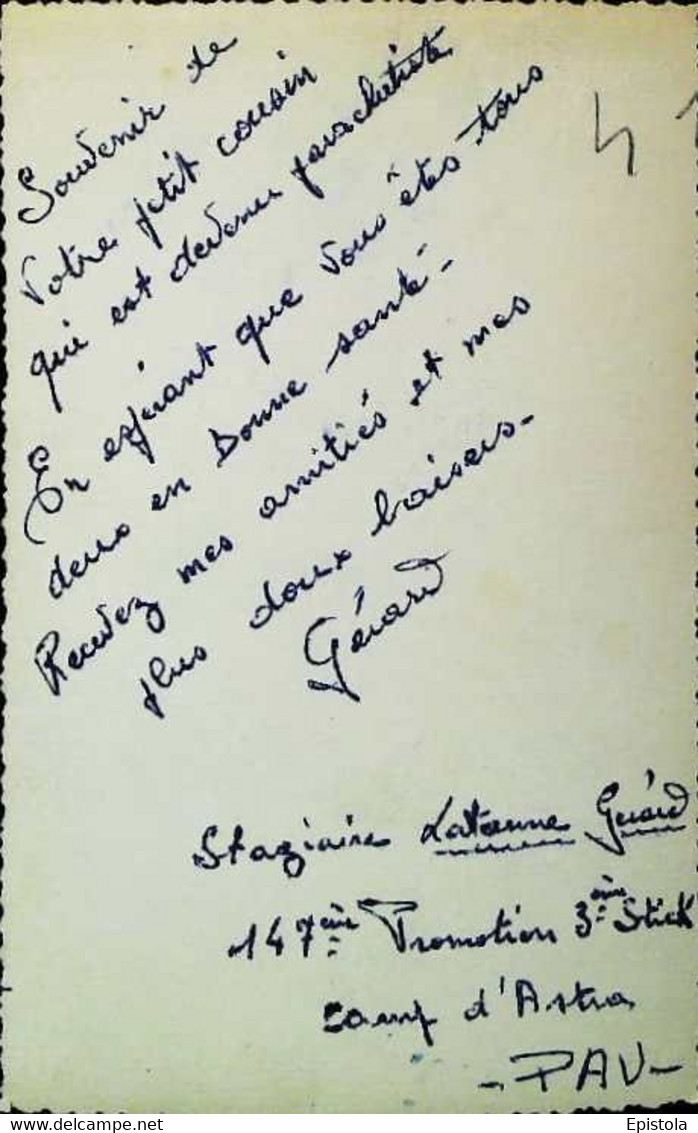 Souvenir de
votre petit cousin
qui est devenu parachutiste
En espérant que vous êtes tous
deux en bonne santé -
Rendez mes amitiés et mes
plus doux baisers -
Gérard
Stagiaire Latanne Gérard
147ème Promotion 3ème Stick
camp d'Astra
- PAU -
delcampe.net
Epistola